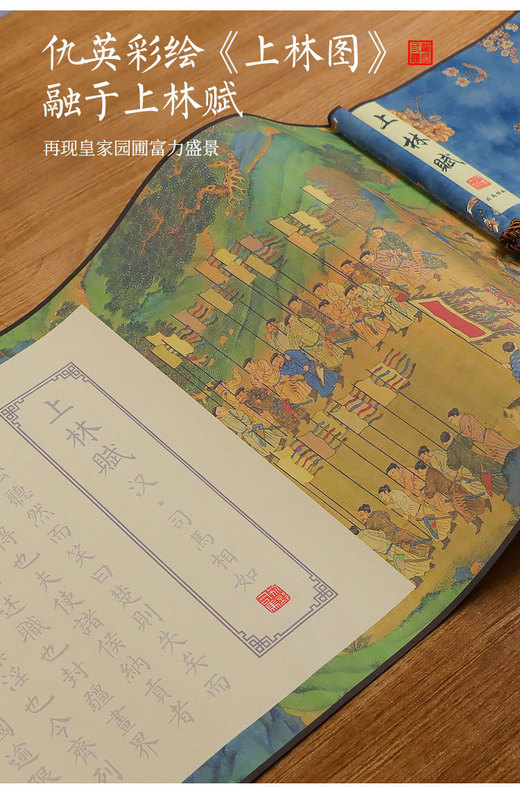 仇英彩绘《上林图》
融于上林赋
再现皇家园圃富力盛景
上林賦
上林賦 汉·司馬相如
聽然而笑曰楚則失矣而
得也夫使諸侯納貢者
述職也封疆畫界
淫也今齊列
國逾限